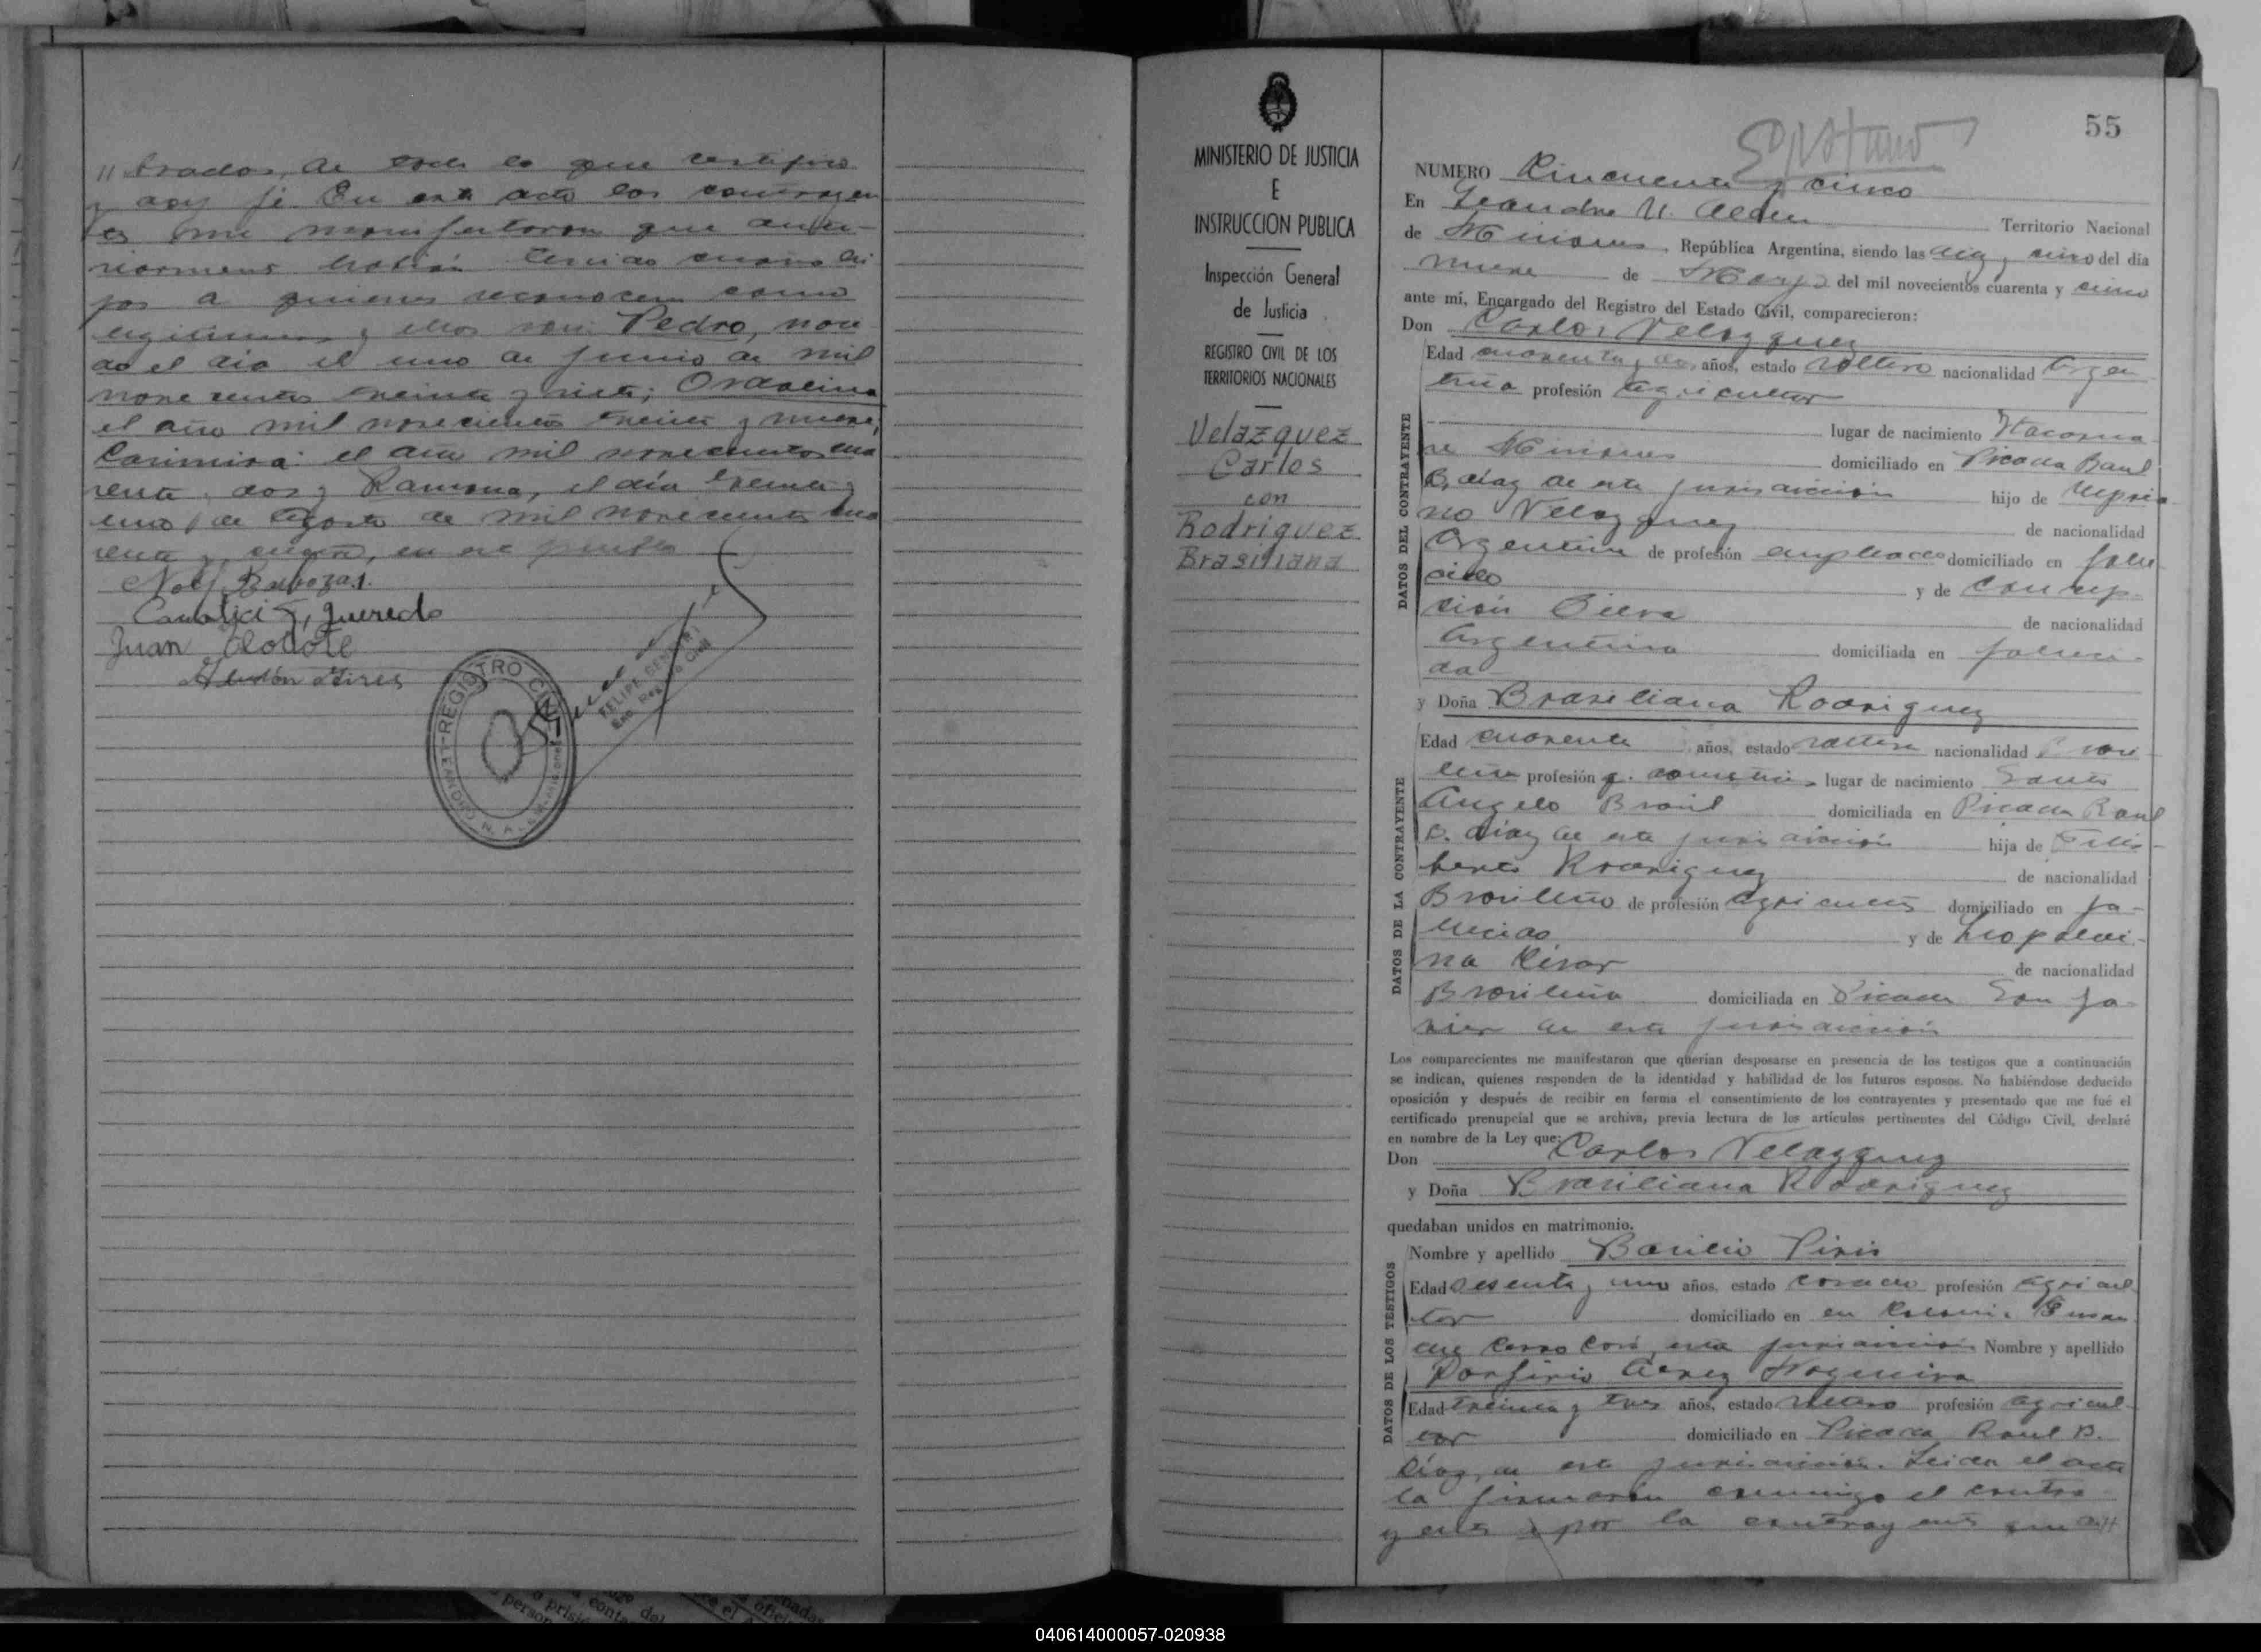 // trados, de todo lo que certifico
y doy fé. En este acto los contrayen
tes me manifestaron que ante-
riormente habían tenido cuatro hi-
jos a quienes reconocen como
legitimos y ellos son: Pedro, naci
do el día el uno de junio de mil
novecientos treinta y siete; Ordalina
el año mil novecientos treinta y nueve,
Casimira: el año mil novecientos cua
renta y dos y Ramona, el día treinta y
uno de Agosto de mil novecientos cua
renta y cuatro, en este pueblo
Juan
REGISTRO CIVIL
LEANDRO N. ALEM, Misiones
FELIPE
Enc. Registro Civil
MINISTERIO DE JUSTICIA
E
INSTRUCCION PUBLICA
Inspección General
de Justicia
REGISTRO CIVIL DE LOS
TERRITORIOS NACIONALES
Velazquez
Carlos
con
Rodriguez
Brasiliana
55
NUMERO Cincuenta y cinco
En Leandro N. Alem Territorio Nacional
de Misiones, República Argentina, siendo las diez y cinco del día
nueve de Marzo del mil novecientos cuarenta y cinco
ante mí, Encargado del Registro del Estado Civil, comparecieron:
Don Carlos Velazquez
Edad cuarenta y dos años, estado soltero nacionalidad Argen
tina profesión agricultor
lugar de nacimiento
Misiones domiciliado en Picada Raul
B. diaz de esta jurisdicción hijo de Sipria
no Velazquez de nacionalidad
Argentina de profesión empleado domiciliado en falle
cido y de Concep-
ción Silva de nacionalidad
Argentina domiciliada en falleci-
da
y Doña Brasiliana Rodriguez
Edad cuarenta años, estado soltera nacionalidad Brasi
leña profesión q. domesticos lugar de nacimiento Santo
Angelo Brasil domiciliada en Picada Raul
B. diaz de esta jurisdicción hija de Felis-
berto Rodriguez de nacionalidad
Brasileño de profesión agricultor domiciliado en fa-
llecido y de Leopoldi-
na de nacionalidad
Brasileña domiciliada en Picada San Ja-
vier de esta jurisdicción
Los comparecientes me manifestaron que querían desposarse en presencia de los testigos que a continuación
se indican, quienes responden de la identidad y habilidad de los futuros esposos. No habiéndose deducido
oposición y después de recibir en forma el consentimiento de los contrayentes y presentado que me fué el
certificado prenupcial que se archiva, previa lectura de los artículos pertinentes del Código Civil, declaré
en nombre de la Ley que:
Don Carlos Velazquez
y Doña Brasiliana Rodriguez
quedaban unidos en matrimonio.
Nombre y apellido Basilio Piris
Edad sesenta y uno años, estado casado profesión agricul
tor domiciliado en en Colonia
Cerro Corá, esta jurisdicción Nombre y apellido
Porfirio Nogueira
Edad treinta y tres años, estado soltero profesión agricul-
tor domiciliado en Picada Raul B.
Díaz, de esta jurisdicción. Leida el acta
la firmaron conmigo el contra
yente y por la contrayente que
DATOS DEL CONTRAYENTE
DATOS DE LA CONTRAYENTE
DATOS DE LOS TESTIGOS
040614000057-020938